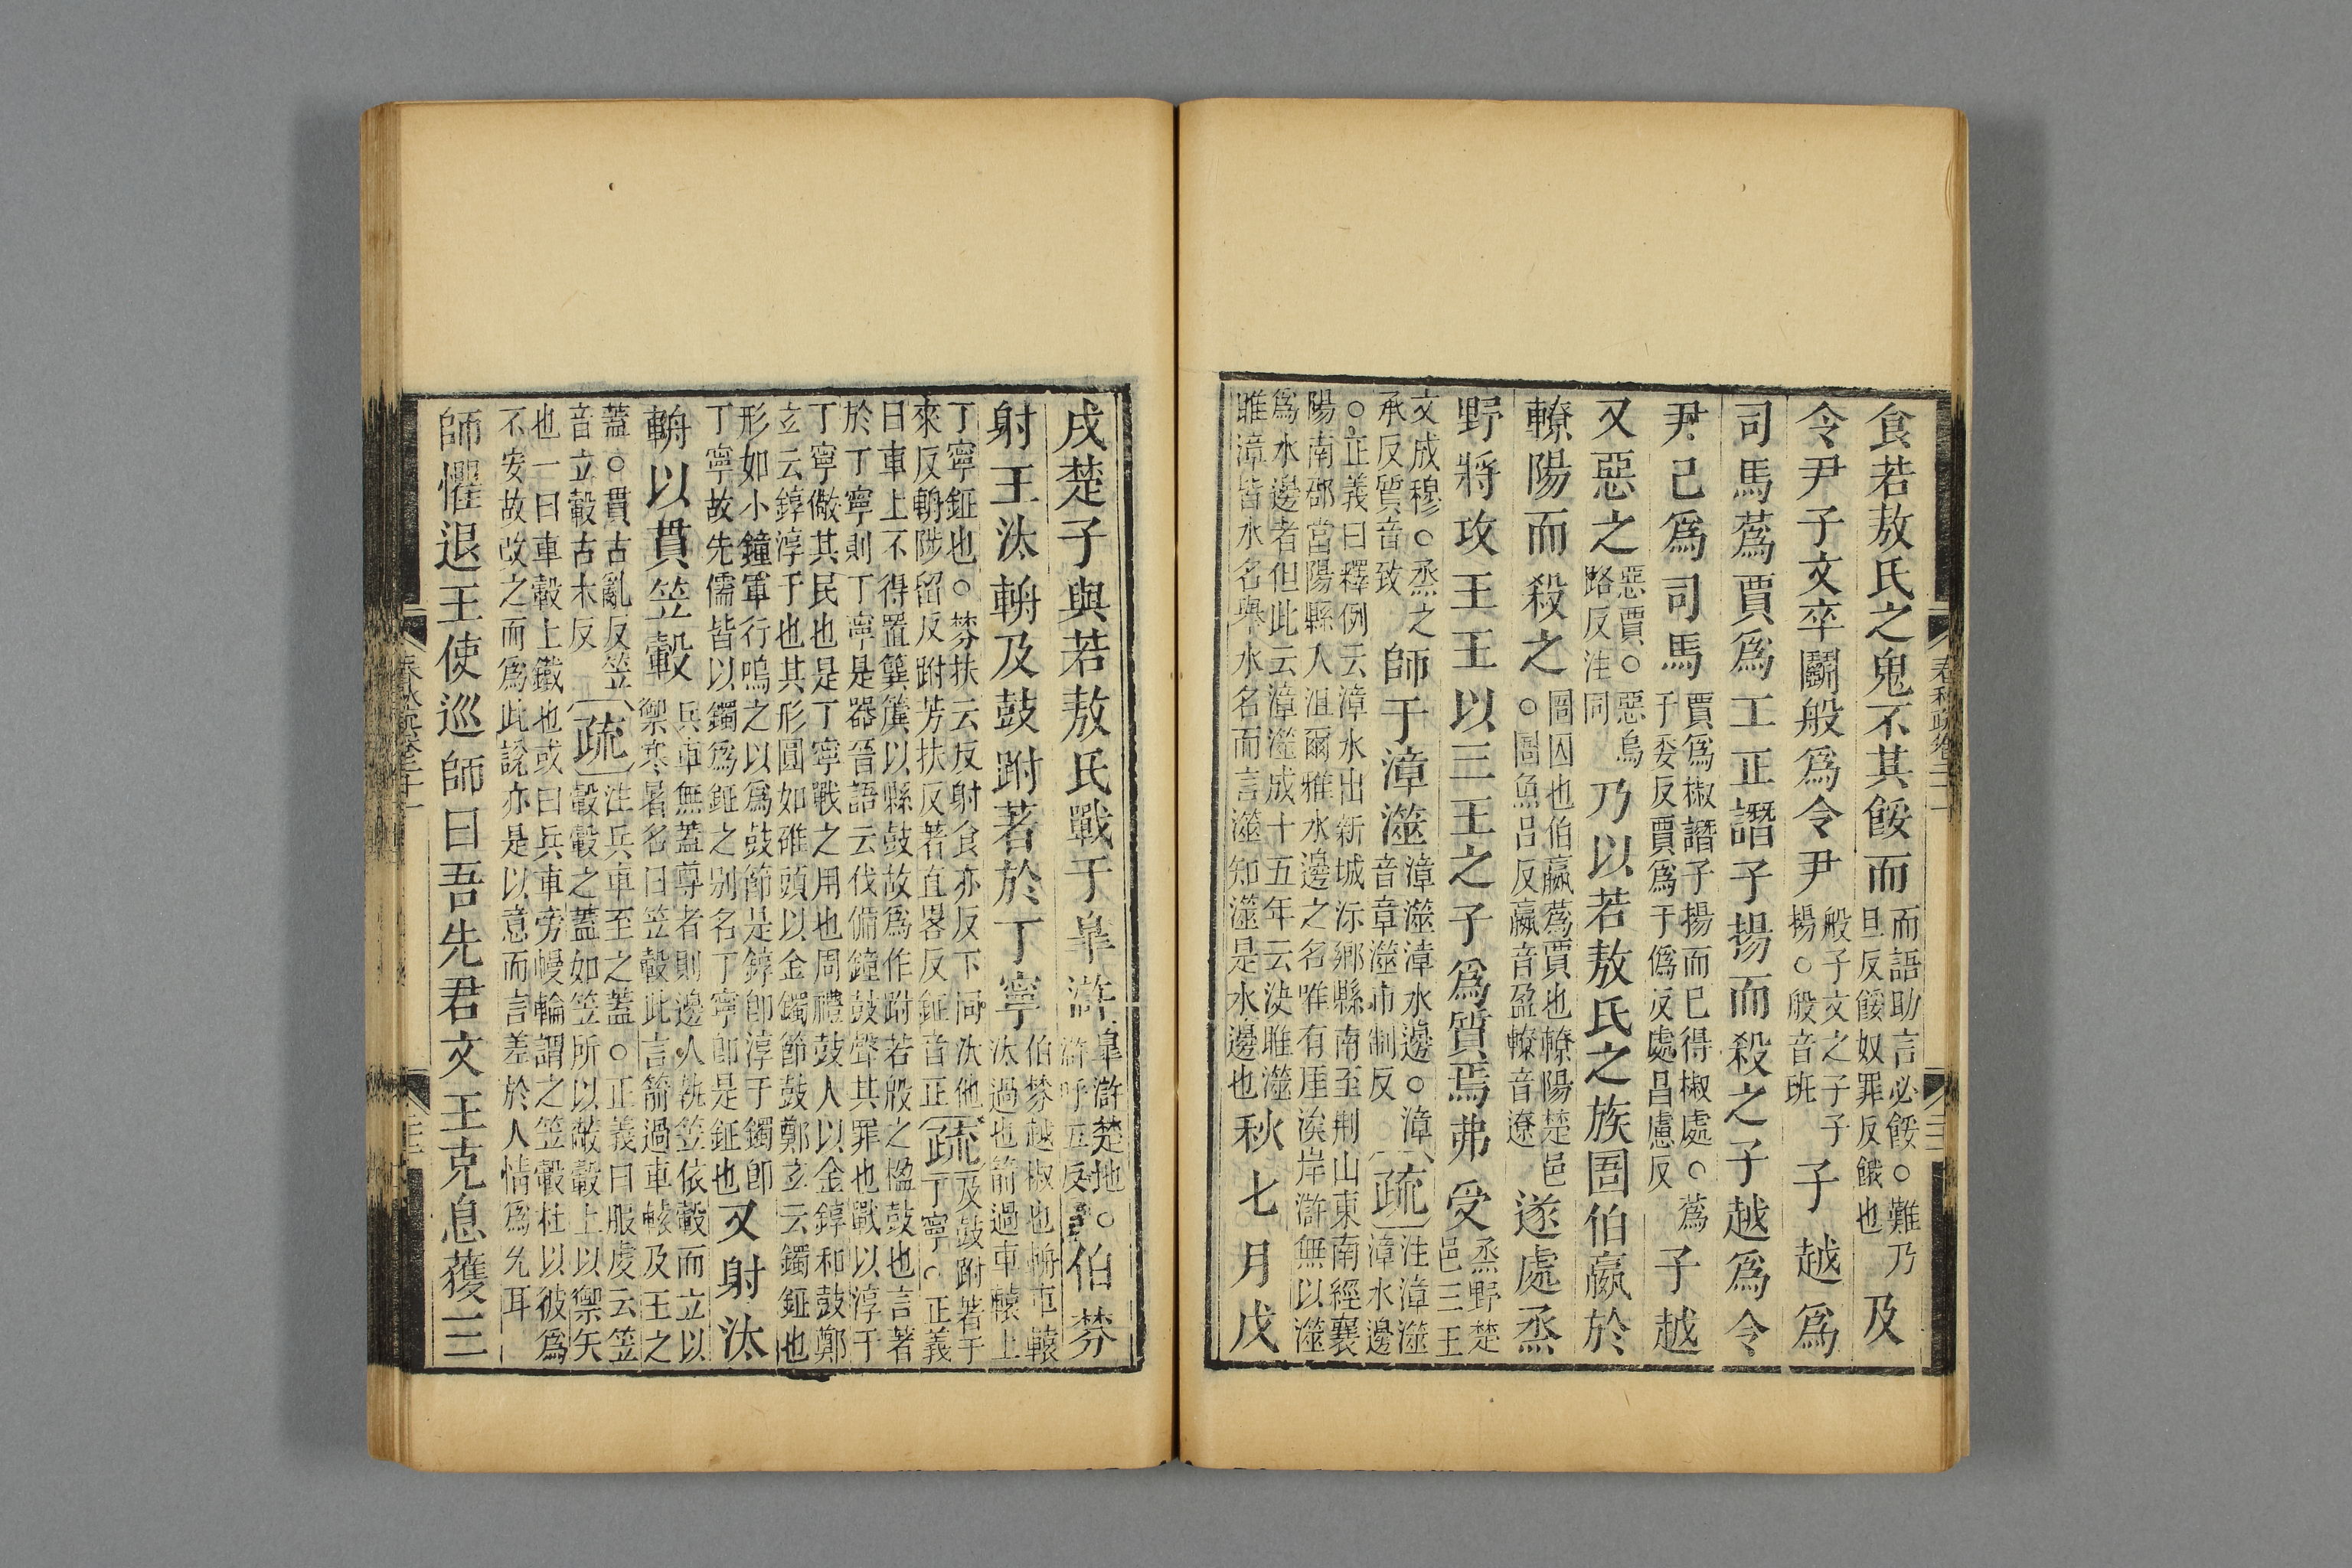 春秋疏卷二十一
食若敖氏之鬼不其餒而而語助言必餒○難乃旦反餒奴罪反餓也及
令尹子文卒鬭般爲令尹般子文之子子揚○般音班子越爲
司馬蒍賈爲工正譖子揚而殺之子越爲令
尹己爲司馬賈爲椒譖子揚而已得椒處○蒍于委反賈爲于僞反處昌慮反子越
又惡之惡賈○惡烏路反注同乃以若敖氏之族圄伯嬴於
轑陽而殺之圄囚也伯嬴蒍賈也轑陽楚邑○圄魚呂反嬴音盈轑音遼遂處烝
野將攻王王以三王之子爲質焉弗受烝野楚邑三王
文成穆○烝之承反質音致師于漳澨漳澨漳水邊○漳音章澨市制反疏注漳澨漳水邊
○正義曰釋例云漳水出新城沶鄉縣南至荆山東南經襄
陽南郡當陽縣入沮爾雅水邊之名唯有厓涘岸滸無以澨
爲水邊者但此云漳澨成十五年云決睢澨
睢漳皆水名與水名而言澨知澨是水邊也秋七月戊
戌楚子與若敖氏戰于皐滸皐滸楚地○滸呼五反伯棼
射王汰輈及鼓跗著於丁寧伯棼越椒也輈車轅汰過也箭過車轅上
丁寧鉦也○棼扶云反射食亦反下同汰他來反輈陟留反跗芳扶反若直畧反鉦音正疏及鼓跗著于丁寧○正義
曰車上不得置簨簴以縣鼓故爲作跗若殷之楹鼓也言著
於丁寧則丁寧是器晉語云伐備鐘鼓聲其罪也戰以淳于
丁寧儆其民也是丁寧戰之用也周禮鼓人以金錞和鼓鄭
玄云錞淳于也其形圓如碓頭以金鐲節鼓鄭玄云鐲鉦也
形如小鐘軍行嗚之以爲鼓節是錞即淳于鐲即
丁寧故先儒皆以鐲爲鉦之别名丁寧即是鉦也又射汰
輈以貫笠轂兵車無蓋尊者則邊人執笠依轂而立以禦寒暑名曰笠轂此言箭過車轅及王之
蓋○貫古亂反笠音立轂古木反疏注兵車至之蓋○正義曰服虔云笠轂轂之蓋如笠所以蔽轂上以禦矢
也一曰車轂上鐵也或曰兵車旁幔輪謂之笠轂杜以彼爲
不安故改之而爲此說亦是以意而言差於人情爲允耳
師懼退王使巡師曰吾先君文王克息獲三